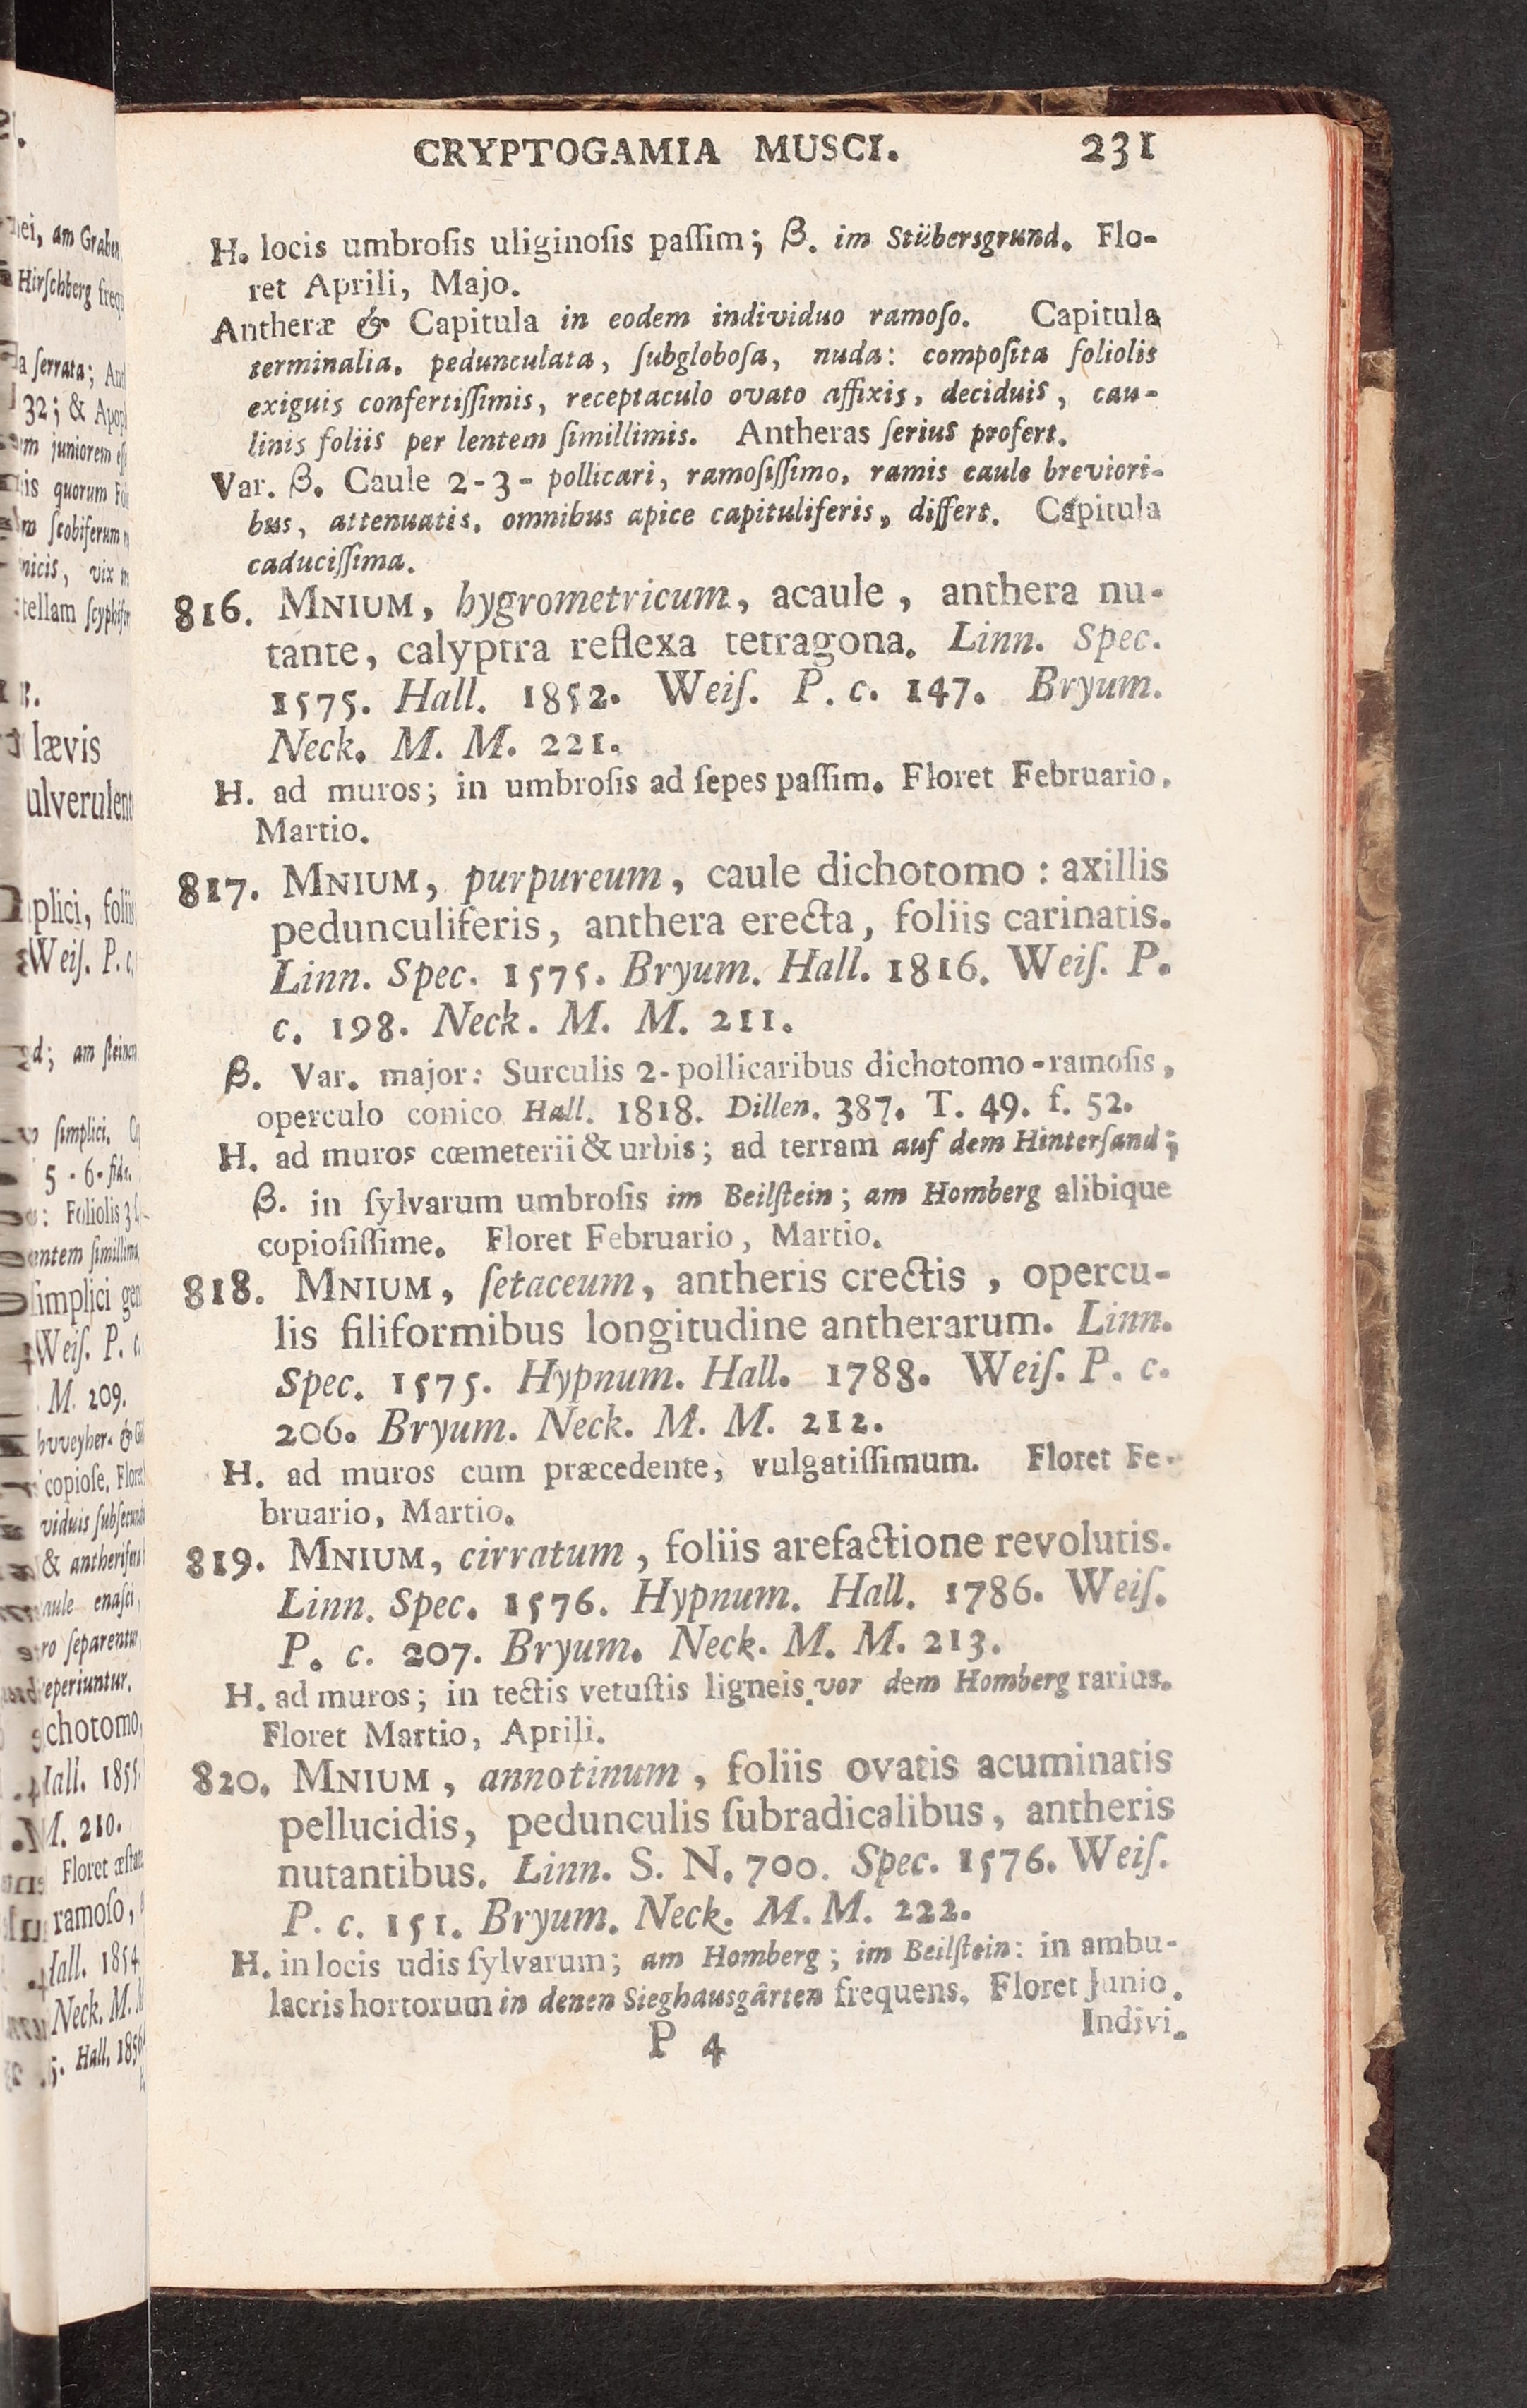 CRYPTOGAMIA MUSCI. 231
H. locis umbroſis uliginoſis paſſim; β. im Stübersgrund. Flo-
ret Aprili, Majo.
Antheræ & Capitula in eodem individuo ramoſo. Capitula
terminalia, pedunculata, ſubgloboſa, nuda: compoſita foliolis
exiguis confertiſſimis, receptaculo ovato affixis, deciduis, cau-
linis foliis per lentem ſimillimis. Antheras ſerius profert.
Var. β. Caule 2-3- pollicari, ramoſiſſimo, ramis caule breviori-
bus, attenuatis, omnibus apice capituliferis, differt. Capitula
caduciſſima.
816. MNIUM, hygrometricum, acaule, anthera nu-
tante, calyptra reflexa tetragona. Linn. Spec.
1575. Hall. 1852. Weiſ. P. c. 147. Bryum.
Neck. M. M. 221.
H. ad muros; in umbroſis ad ſepes paſſim. Floret Februario,
Martio.
817. MNIUM, purpureum, caule dichotomo: axillis
pedunculiferis, anthera erecta, foliis carinatis.
Linn. Spec. 1575. Bryum. Hall. 1816. Weiſ. P.
c. 198. Neck. M. M. 211.
β. Var. major: Surculis 2-pollicaribus dichotomo-ramoſis,
operculo conico Hall. 1818. Dillen. 387. T. 49. f. 52.
H. ad muros cœmeterii & urbis; ad terram auf dem Hinterſand;
β. in ſylvarum umbroſis im Beilſtein; am Homberg alibique
copioſiſſime. Floret Februario, Martio.
818. MNIUM, ſetaceum, antheris crectis, opercu-
lis filiformibus longitudine antherarum. Linn.
Spec. 1575. Hypnum. Hall. 1788. Weiſ. P. c.
206. Bryum. Neck. M. M. 212.
H. ad muros cum præcedente, vulgatiſſimum. Floret Fe-
bruario, Martio.
819. MNIUM, cirratum, foliis arefactione revolutis.
Linn. Spec. 1576. Hypnum. Hall. 1786. Weiſ.
P. c. 207. Bryum. Neck. M. M. 213.
H. ad muros; in tectis vetuſtis ligneis vor dem Homberg rarius.
Floret Martio, Aprili.
820. MNIUM, annotinum, foliis ovatis acuminatis
pellucidis, pedunculis ſubradicalibus, antheris
nutantibus. Linn. S. N. 700. Spec. 1576. Weiſ.
P. c. 151. Bryum. Neck. M. M. 222.
H. in locis udis ſylvarum; am Homberg; im Beilſtein: in ambu-
lacris hortorum in denen Sieghausgârten frequens. Floret Junio.
P 4 Indivi-